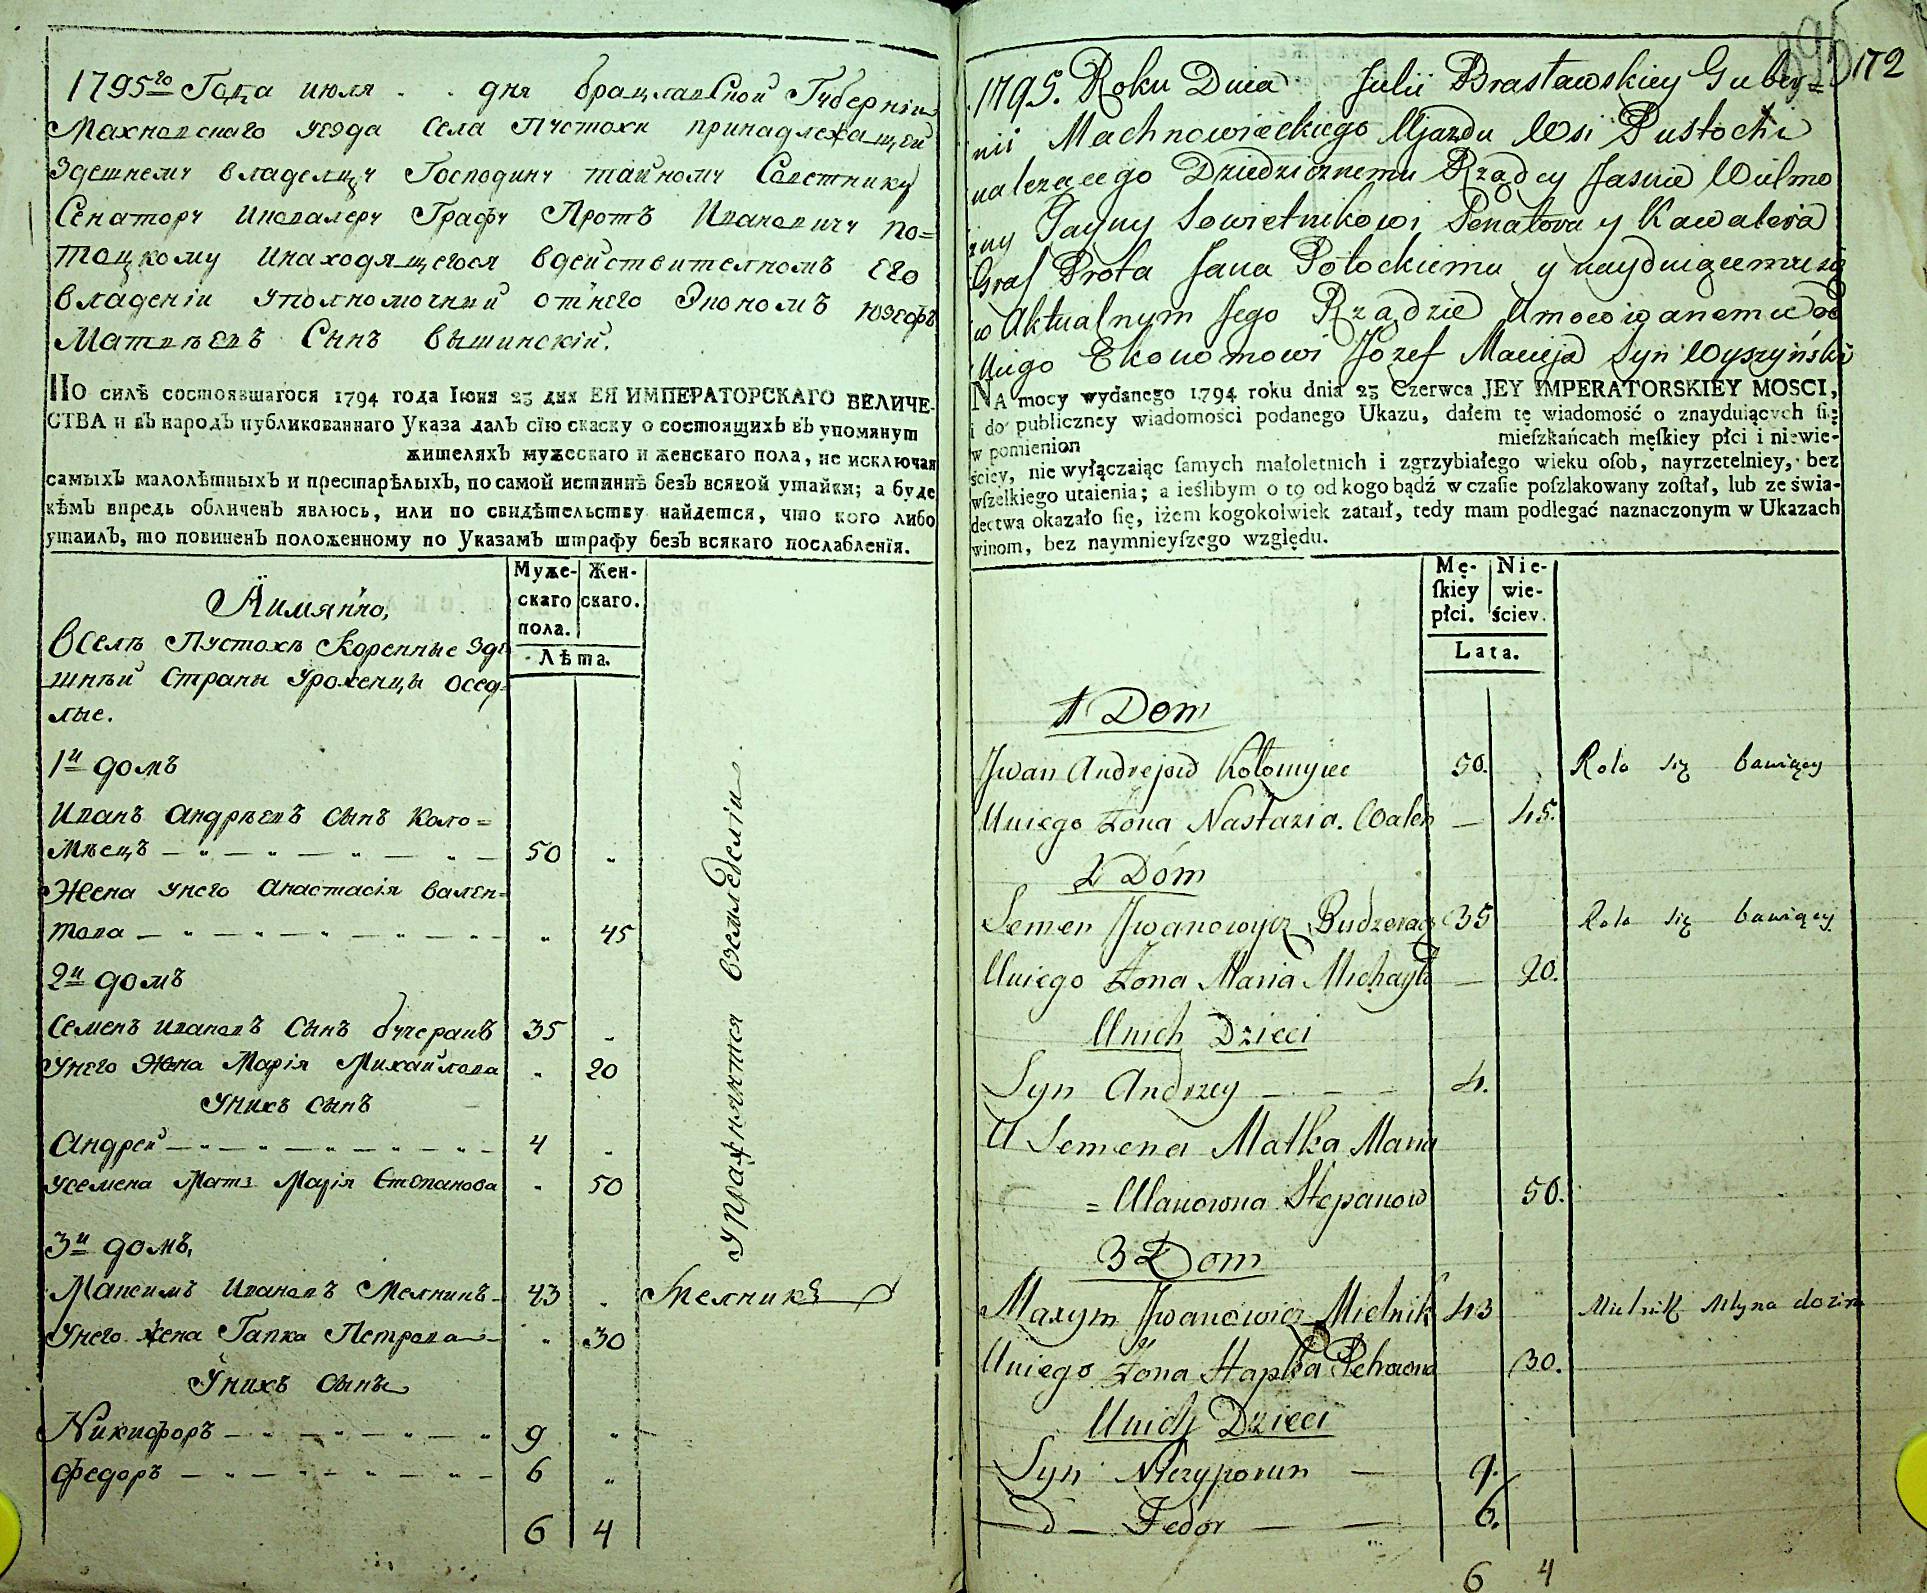 1795го Года июля . . дня брацлавской Губерніи
Махновскаго уезда села Пустохи принадлежащей
здешнему владелцу Господину тайному Советнику
Сенатору икавалеру Графу Протъ Ивановичу По=
тоцкому инаходящегося вдействителномъ его
владеніи уполномочный отнего Экономъ Юзефъ
Матвѣевъ Сынъ вышинскій.
ПО силѣ состоявшагося 1794 года Іюня 23 дня ЕЯ ИМПЕРАТОРСКАГО ВЕЛИЧЕ-
СТВА и въ народъ публикованнаго Указа далъ сїю скаску о состоящихъ въ упомянут
жителяхъ мужескаго и женскаго пола, не исключая
самыхъ малолѣтныхъ и престарѣлыхъ, по самой истиннѣ безъ всякой утайки; а буде
кѣмъ впредь обличенъ явлюсь, или по свидѣтельству найдется, что кого либо
утаилъ, то повиненъ положенному по Указамъ штрафу безъ всякаго послабленїя.
Муже- Жен-
скаго скаго.
пола.
Лѣта.
Аимянно,
вселѣ Пустохѣ Коренные зде
шнѣй страны уроженцы осед-
лые.
1й домъ
Иванъ андрѣевъ сынъ коло=
мѣецъ 50
Жена унего анастасія вален=
това 45
2й домъ
Семенъ ивановъ сынъ бучеракъ 35
Унего жена Марія Михайлова 20
Унихъ сынъ
Андрей 4
усемена мать Марія Степанова 50
3й домъ,
Максимъ ивановъ мелникъ 43 Мелникъ
Унего жена Гапка Петрова 30
Унихъ сыны
Никифоръ 9
федоръ 6
6 4
упражняются вземледеліи
172
1795. Roku Dnia Julii Brasławskiey Guber=
nii Machnowieckiego Ujazdu Wsi Pustochi
należącego Dziedzicznemu Rządcy Jasnie Wielmo
żny Tayny Sowietnikowi Senatora y Kawalera
Graf Prota Jana Potockiemu y nayduiącemu się
w Aktualnym Jego Rządzie Umocowanemu od
Niego Ekonomowi Jozef Macieja Syn Wyszyński
NA mocy wydanego 1794 roku dnia 23 Czerwca JEY IMPERATORSKIEY MOSCI,
i do publiczney wiadomości podanego Ukazu, dałem tę wiadomość o znayduiących ſię
w pomienion mieſzkańcach męſkiey płci i niewie-
ściey, nie wyłączaiąc ſamych małoletnich i zgrzybiałego wieku oſob, nayrzetelniey, bez
wſzelkiego utaienia; a ieślibym o to od kogo bądź w czaſie poſzlakowany zoſtał, lub ze świa-
dectwa okazało ſię, iżem kogokolwiek zataił, tedy mam podlegać naznaczonym w Ukazach
winom, bez naymnieyſzego względu.
Mę- Nie-
ſkiey wie-
płci. ściey.
Lata.
1 Dom
Jwan Andrejow Kołomyiec 50. Rolo się bawiący
Uniego Żona Nastazia. Walen 45.
2 Dom
Semen Jwanowycz Budzeracz 35 Rolo się bawiący
Uniego Żona Maria Michayło 20.
Unich Dzieci
Syn Andrzey 4.
U Semena Matka Maria
= Ulanowna Stepanow 50.
3 Dom
Maxym Jwanowicz Mielnik 43 Mielnik Młyna dozira
Uniego Żona Hapka Petrowna 30.
Unich Dzieci
Syn Niczyporun 9.
d Fedor 6.
6 4